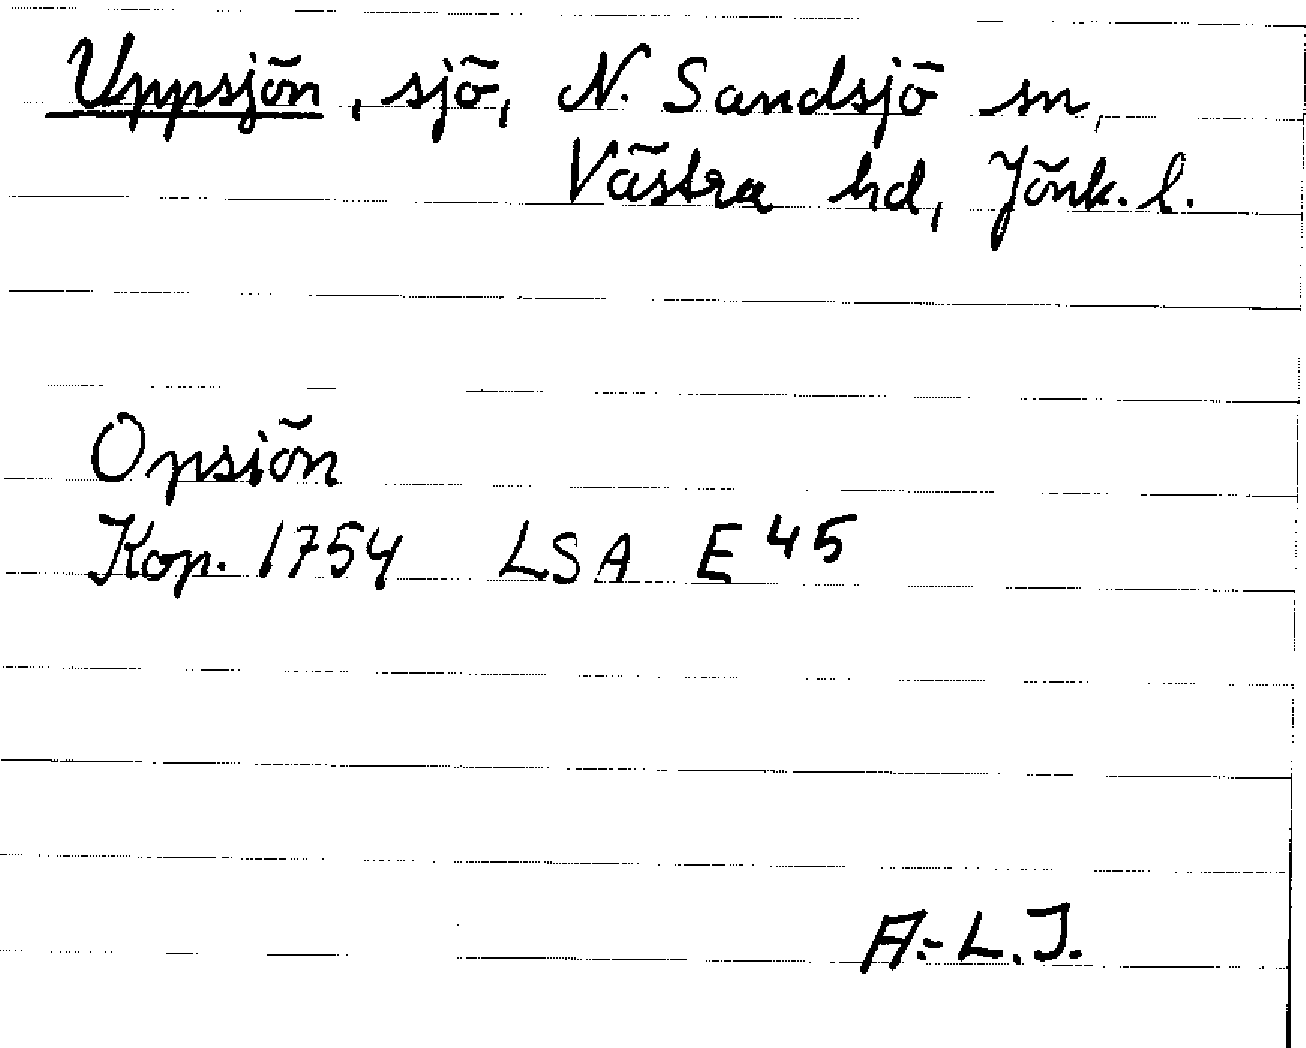 Uppsjön, sjö, N. Sandsjö sn,
Västra hd, Jönk. l.
Opsiön
Kop. 1754 LSA E 45
A.-L.J.